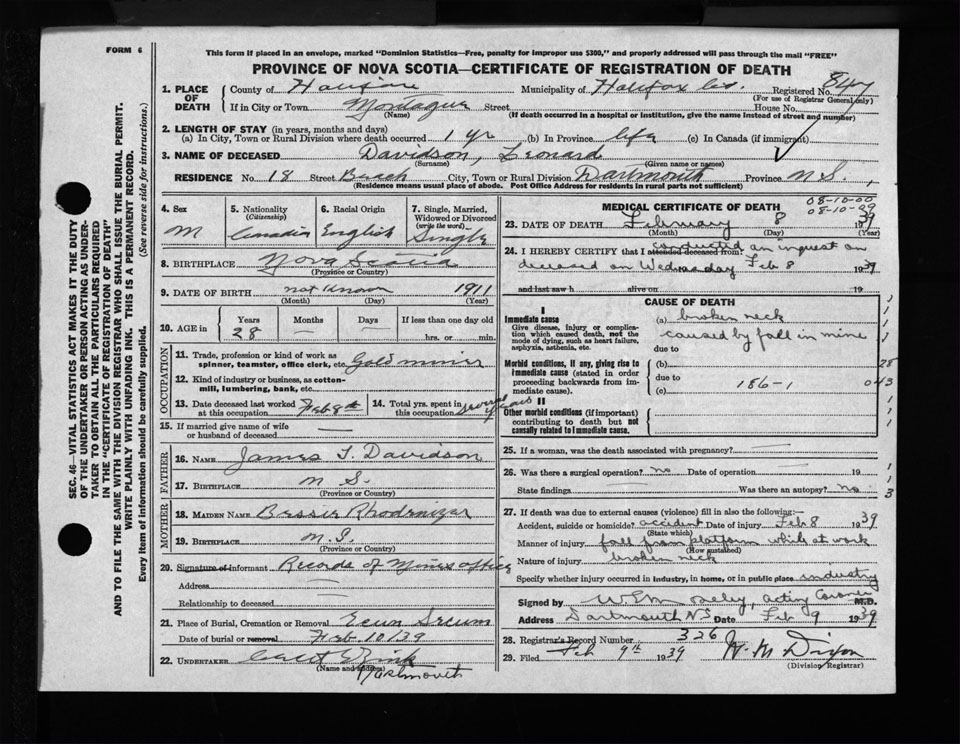 FORM 6
This form if placed in an envelope, marked "Dominion Statistics—Free, penalty for improper use $300," and properly addressed will pass through the mail "FREE"
PROVINCE OF NOVA SCOTIA—CERTIFICATE OF REGISTRATION OF DEATH
SEC. 46—VITAL STATISTICS ACT MAKES IT THE DUTY
OF THE UNDERTAKER OR PERSON ACTING AS UNDER-
TAKER TO OBTAIN ALL THE PARTICULARS REQUIRED
IN THE "CERTIFICATE OF REGISTRATION OF DEATH"
AND TO FILE THE SAME WITH THE DIVISION REGISTRAR WHO SHALL ISSUE THE BURIAL PERMIT.
WRITE PLAINLY WITH UNFADING INK. THIS IS A PERMANENT RECORD.
Every item of information should be carefully supplied. (See reverse side for instructions.)
1. PLACE OF DEATH County of Halifax Municipality of Halifax Co. Registered No. 847
(For use of Registrar General only)
If in City or Town Montague Street House No.
(Name) (If death occurred in a hospital or institution, give the name instead of street and number)
2. LENGTH OF STAY (in years, months and days)
(a) In City, Town or Rural Division where death occurred 1 yr (b) In Province life (c) In Canada (if immigrant)
3. NAME OF DECEASED Davidson, Leonard
(Surname) (Given name or names)
RESIDENCE No. 18 Street Beech City, Town or Rural Division Dartmouth Province N.S.
(Residence means usual place of abode. Post Office Address for residents in rural parts not sufficient)
4. Sex M
5. Nationality (Citizenship) Canadian
6. Racial Origin English
7. Single, Married, Widowed or Divorced (write the word) Single
8. BIRTHPLACE Nova Scotia
(Province or Country)
9. DATE OF BIRTH not known 1911
(Month) (Day) (Year)
10. AGE in Years 28 Months — Days — If less than one day old
hrs. or min.
OCCUPATION
11. Trade, profession or kind of work as spinner, teamster, office clerk, etc. Gold miner
12. Kind of industry or business, as cotton-mill, lumbering, bank, etc.
13. Date deceased last worked at this occupation Feb 8th
14. Total yrs. spent in this occupation several years
15. If married give name of wife or husband of deceased —
FATHER
16. NAME James T. Davidson
17. BIRTHPLACE N S.
(Province or Country)
MOTHER
18. MAIDEN NAME Bessie Rhodenizer
19. BIRTHPLACE N.S.
(Province or Country)
20. Signature of Informant Records of Mines office
Address —
Relationship to deceased —
21. Place of Burial, Cremation or Removal Ecum Secum
Date of burial or removal Feb. 10/39
22. UNDERTAKER
(Name and Address)
Dartmouth
MEDICAL CERTIFICATE OF DEATH
08-10-00
08-10-09
23. DATE OF DEATH February 8 39
(Month) (Day) (Year)
24. I HEREBY CERTIFY that I attended deceased from: conducted an inquest on
deceased on Wednesday Feb 8 1939
and last saw h alive on 19
CAUSE OF DEATH
I
Immediate cause
Give disease, injury or complication which caused death, not the mode of dying, such as heart failure, asphyxia, asthenia, etc.
(a) broken neck
caused by fall in mine
due to
Morbid conditions, if any, giving rise to immediate cause (stated in order proceeding backwards from immediate cause).
(b)
due to
186-1
(c)
28
043
II
Other morbid conditions (if important) contributing to death but not causally related to immediate cause.
25. If a woman, was the death associated with pregnancy? —
26. Was there a surgical operation? no Date of operation — 19
State findings Was there an autopsy? no
27. If death was due to external causes (violence) fill in also the following:—
Accident, suicide or homicide? accident Date of injury Feb 8 1939
(State which)
Manner of injury fall from platform while at work
(How sustained)
Nature of injury broken neck
Specify whether injury occurred in industry, in home, or in public place industry
Signed by Acting Coroner M.D.
Address Dartmouth NS Date Feb 9 1939
28. Registrar's Record Number 326
29. Filed Feb 9th 1939 W. M. Dixon
(Division Registrar)